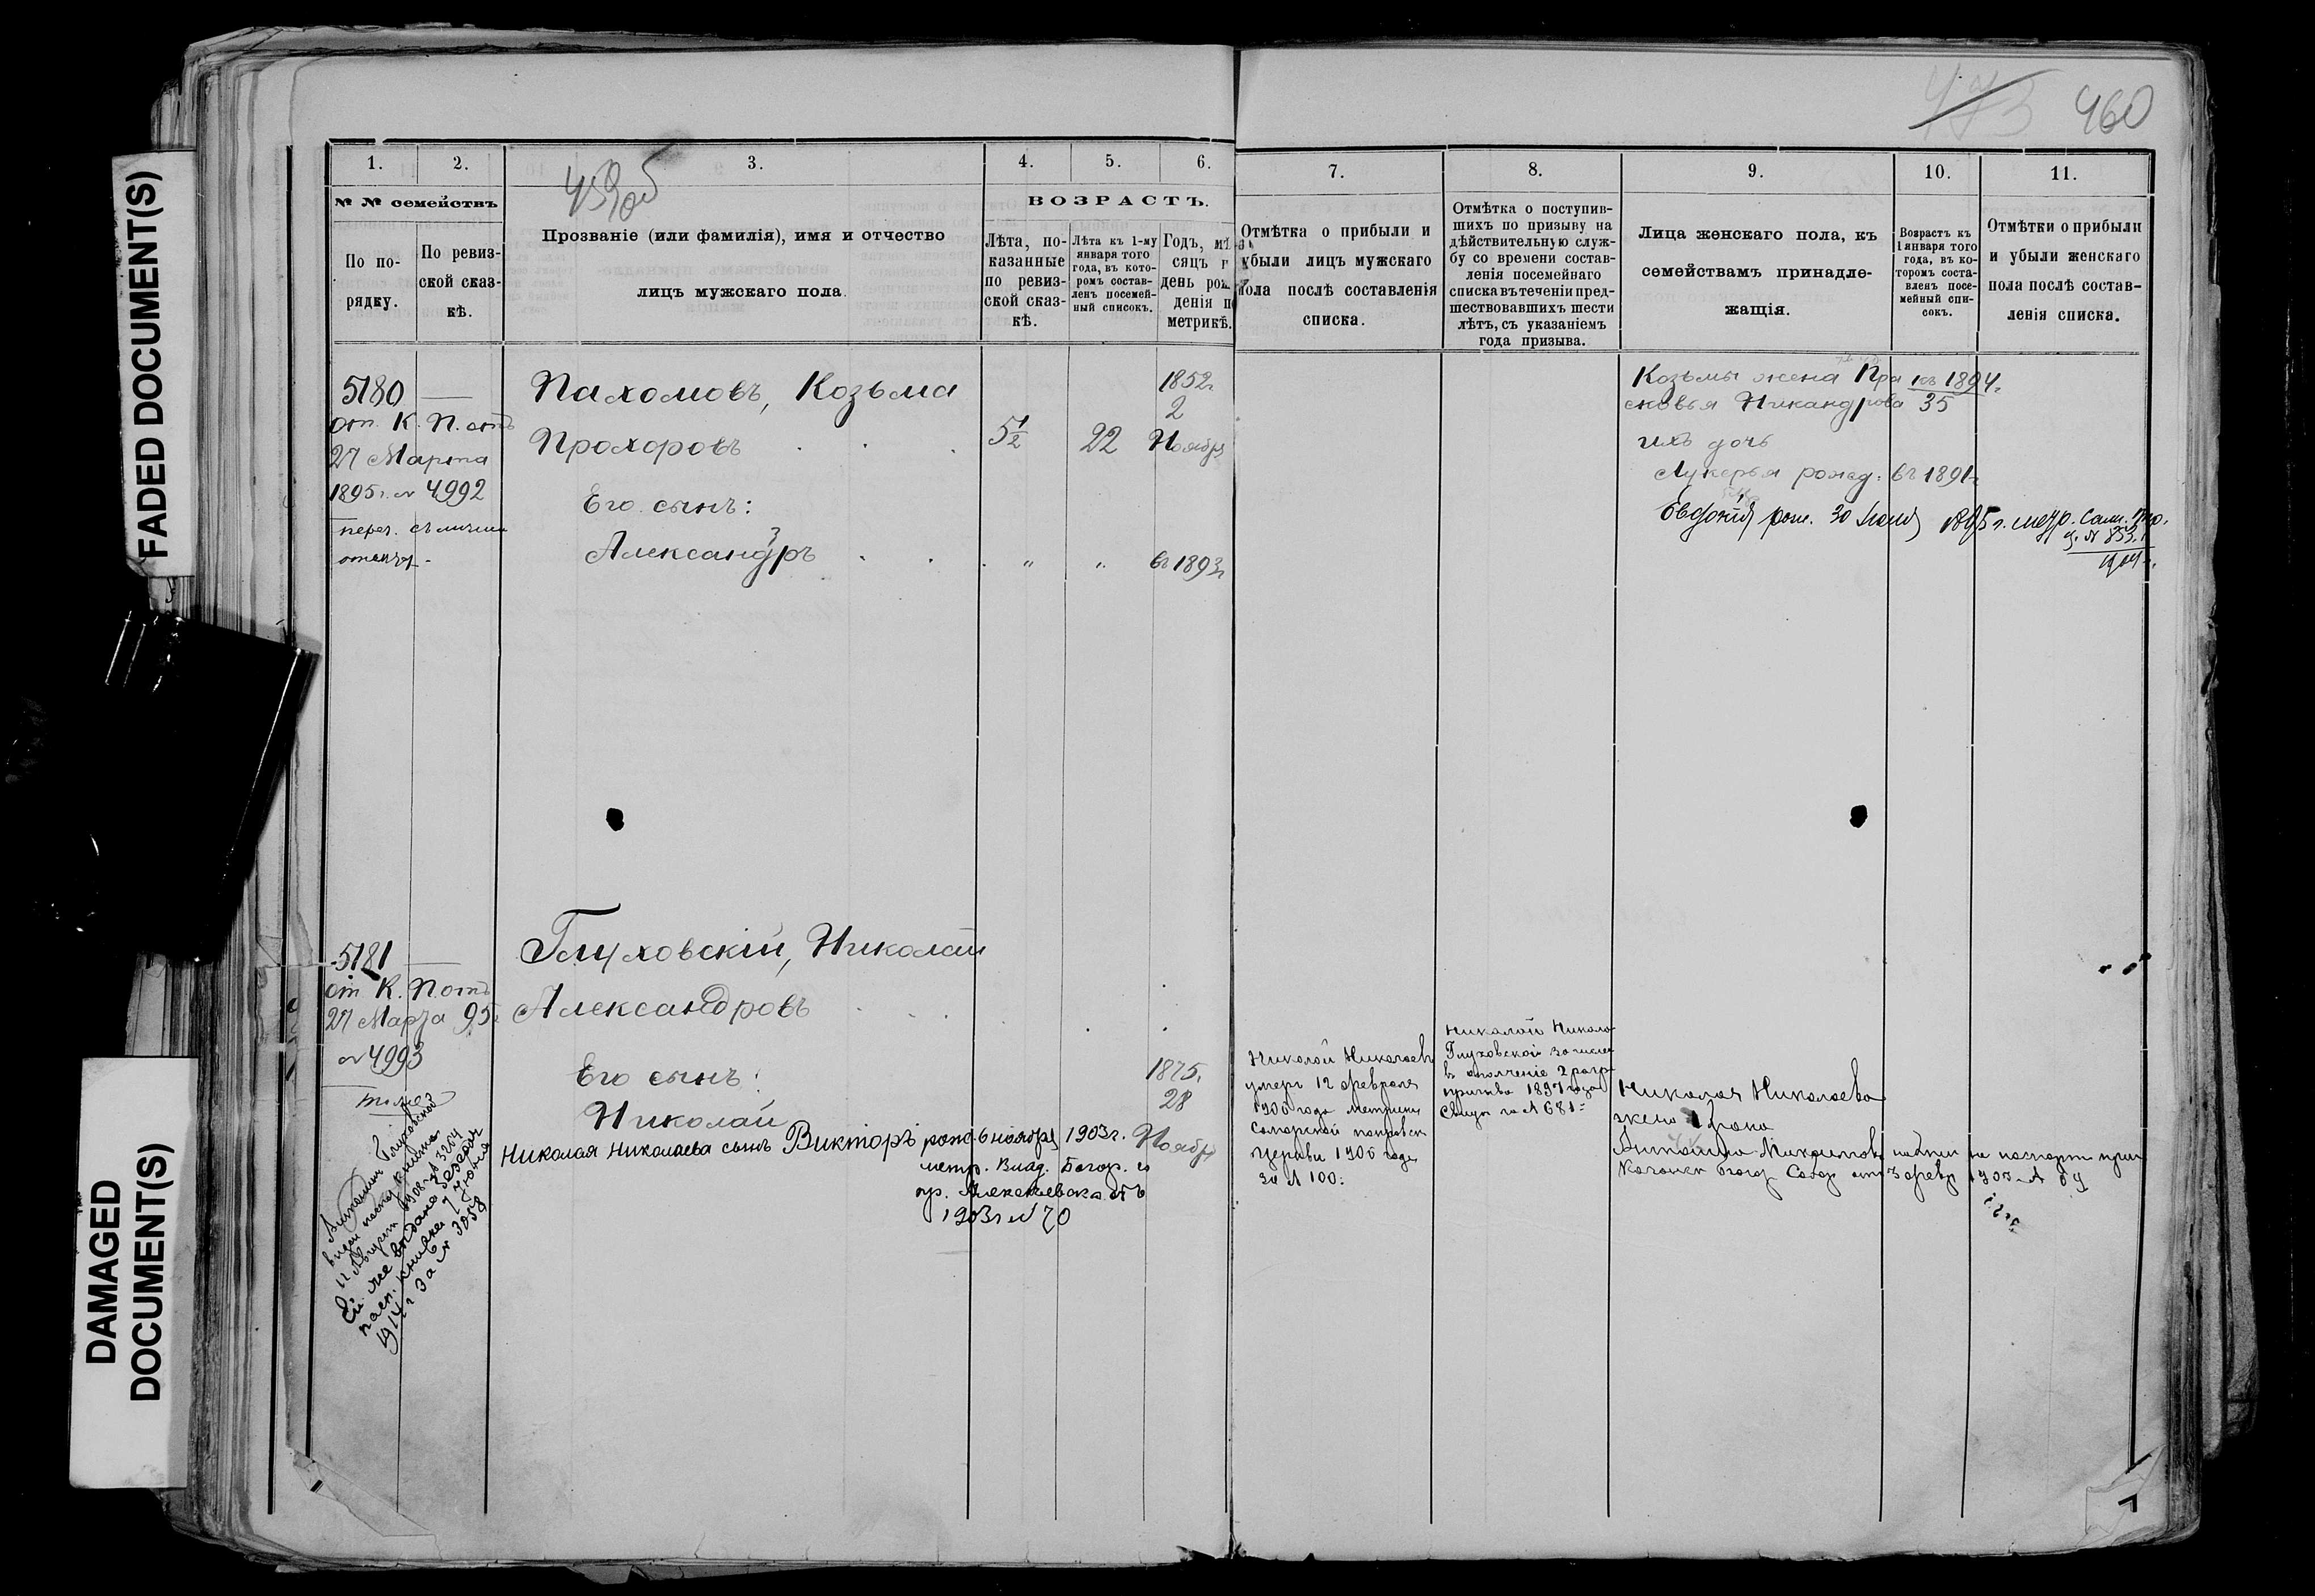 FADED DOCUMENT(S)
DAMAGED DOCUMENT(S)
473 460
459 об
1. 2. 3. 4. 5. 6.
№ № семействъ
По по-
рядку.
По ревиз-
ской сказ-
кѣ.
Прозваніе (или фамилія), имя и отчество
лицъ мужскаго пола.
ВОЗРАСТЪ.
Лѣта, по-
казанные
по ревиз-
ской сказ-
кѣ.
Лѣта къ 1-му
января того
года, въ кото-
ромъ состав-
ленъ посемей-
ный списокъ.
Годъ, мѣ
сяцъ и
день рож
денія по
метрикѣ.
7. 8. 9. 10. 11.
Отмѣтка о прибыли и
убыли лицъ мужскаго
пола послѣ составленія
списка.
Отмѣтка о поступив-
шихъ по призыву на
дѣйствительную служ-
бу со времени состав-
ленія посемейнаго
списка въ теченіи пред-
шествовавшихъ шести
лѣтъ, съ указаніемъ
года призыва.
Лица женскаго пола, къ
семействамъ принадле-
жащія.
Возрастъ къ
1 января того
года, въ ко-
торомъ соста-
вленъ посе-
мейный спи-
сокъ.
Отмѣтки о прибыли
и убыли женскаго
пола послѣ состав-
ленія списка.
5180
от. К. П. отъ
27 Марта
1895 г. № 4992
Пахомовъ, Козьма
Прохоровъ
5½ 22
1852 г.
2
Ноября
Его сынъ:
Александръ 3 " " въ 1893 г.
Козьмы жена Пра
сковья Никандрова
къ 1894 г.
35
ихъ дочь
Лукерья рожд. въ 1891 г.
Евдокія рож. 30 Іюля 1895 г. метр. Сам. Тр.
ц. № 853
1904 г.
5181
от К. П. отъ
27 Марта 95 г.
№ 4993
Глуховскій, Николай
Александровъ
Его сынъ:
Николай
1875.
28
Ноября
Николая Николаева сынъ Викторъ рожд. 6 ноября 1903 г.
метр. Влад. Богор. ц.
гр. Алексѣевска отъ
1903 г № 70
Николай Николаевъ
умеръ 12 февраля
1906 года метрики
Самарской покровск
Церкви 1906 года
за № 100.
Николай Никола
Глуховской зачислен
въ ополченіе 2 разр
призыва 1897 года
Свид. за № 681
Николая Николаева
жена 1 брака
Антонина
Ей же выдана
пасп. книжка 7 Іюня
1914 г За № 3058